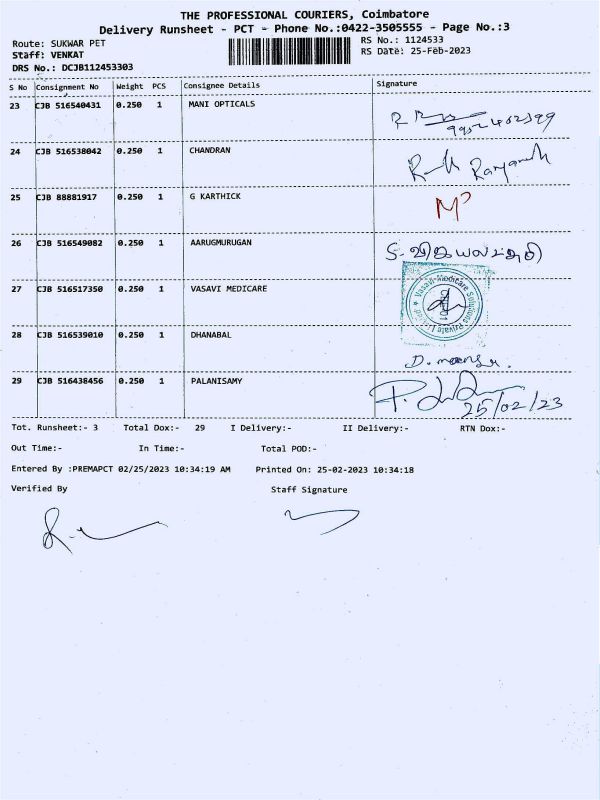 THE PROFESSIONAL COURIERS, Coimbatore
Delivery Runsheet - PCT - Phone No.:0422-3505555 - Page No.:3
Route: SUKWAR PET RS No.: 1124533
Staff: VENKAT RS Date: 25-Feb-2023
DRS No.: DCJB112453303
S No Consignment No Weight PCS Consignee Details Signature
23 CJB 516540431 0.250 1 MANI OPTICALS
24 CJB 516538042 0.250 1 CHANDRAN
25 CJB 88881917 0.250 1 G KARTHICK
26 CJB 516549082 0.250 1 AARUGMURUGAN
27 CJB 516517350 0.250 1 VASAVI MEDICARE
Vasavi Medicare Solutions Private Limited
28 CJB 516539010 0.250 1 DHANABAL
29 CJB 516438456 0.250 1 PALANISAMY
25/02/23
Tot. Runsheet:- 3 Total Dox:- 29 I Delivery:- II Delivery:- RTN Dox:-
Out Time:- In Time:- Total POD:-
Entered By :PREMAPCT 02/25/2023 10:34:19 AM Printed On: 25-02-2023 10:34:18
Verified By Staff Signature